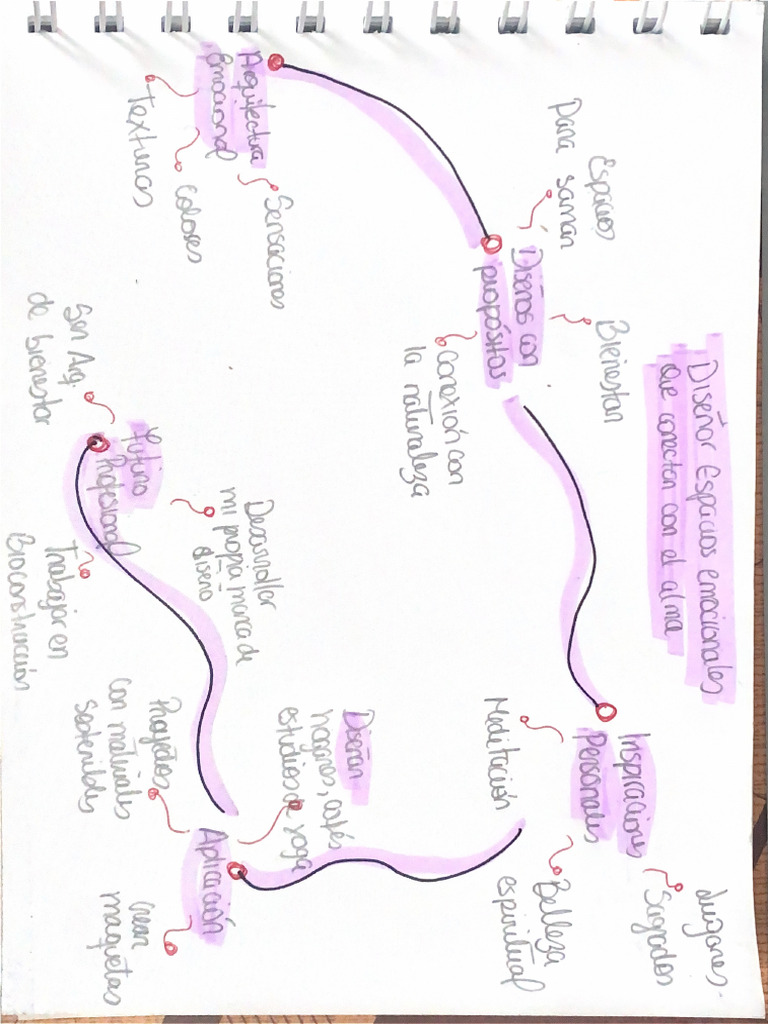 Diseñar Espacios emocionales
que conectan con el alma
Arquitectura
emocional
Texturas
Colores
Sensaciones
Diseños con
propósitos
Espacios
para sanar
Bienestar
Conexión con
la naturaleza
Inspiraciones
Personales
Meditación
Belleza
espiritual
Lugares
Sagrados
Aplicación
Diseñar
hogares, cafés
estudios de yoga
Proyectos
con materiales
sostenibles
Crear
maquetas
Futuro
Profesional
Ser Arq.
de bienestar
Desarrollar
mi propia marca de
diseño
Trabajar en
Bioconstrucción